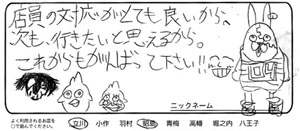 店員の対応がとても良いから、
次も、行きたいと思えるから。
これからもがんばって下さい!!
ニックネーム
よく利用されるお店を
○で囲んでください。
立川 小作 羽村 昭島 青梅 高幡 堀之内 八王子